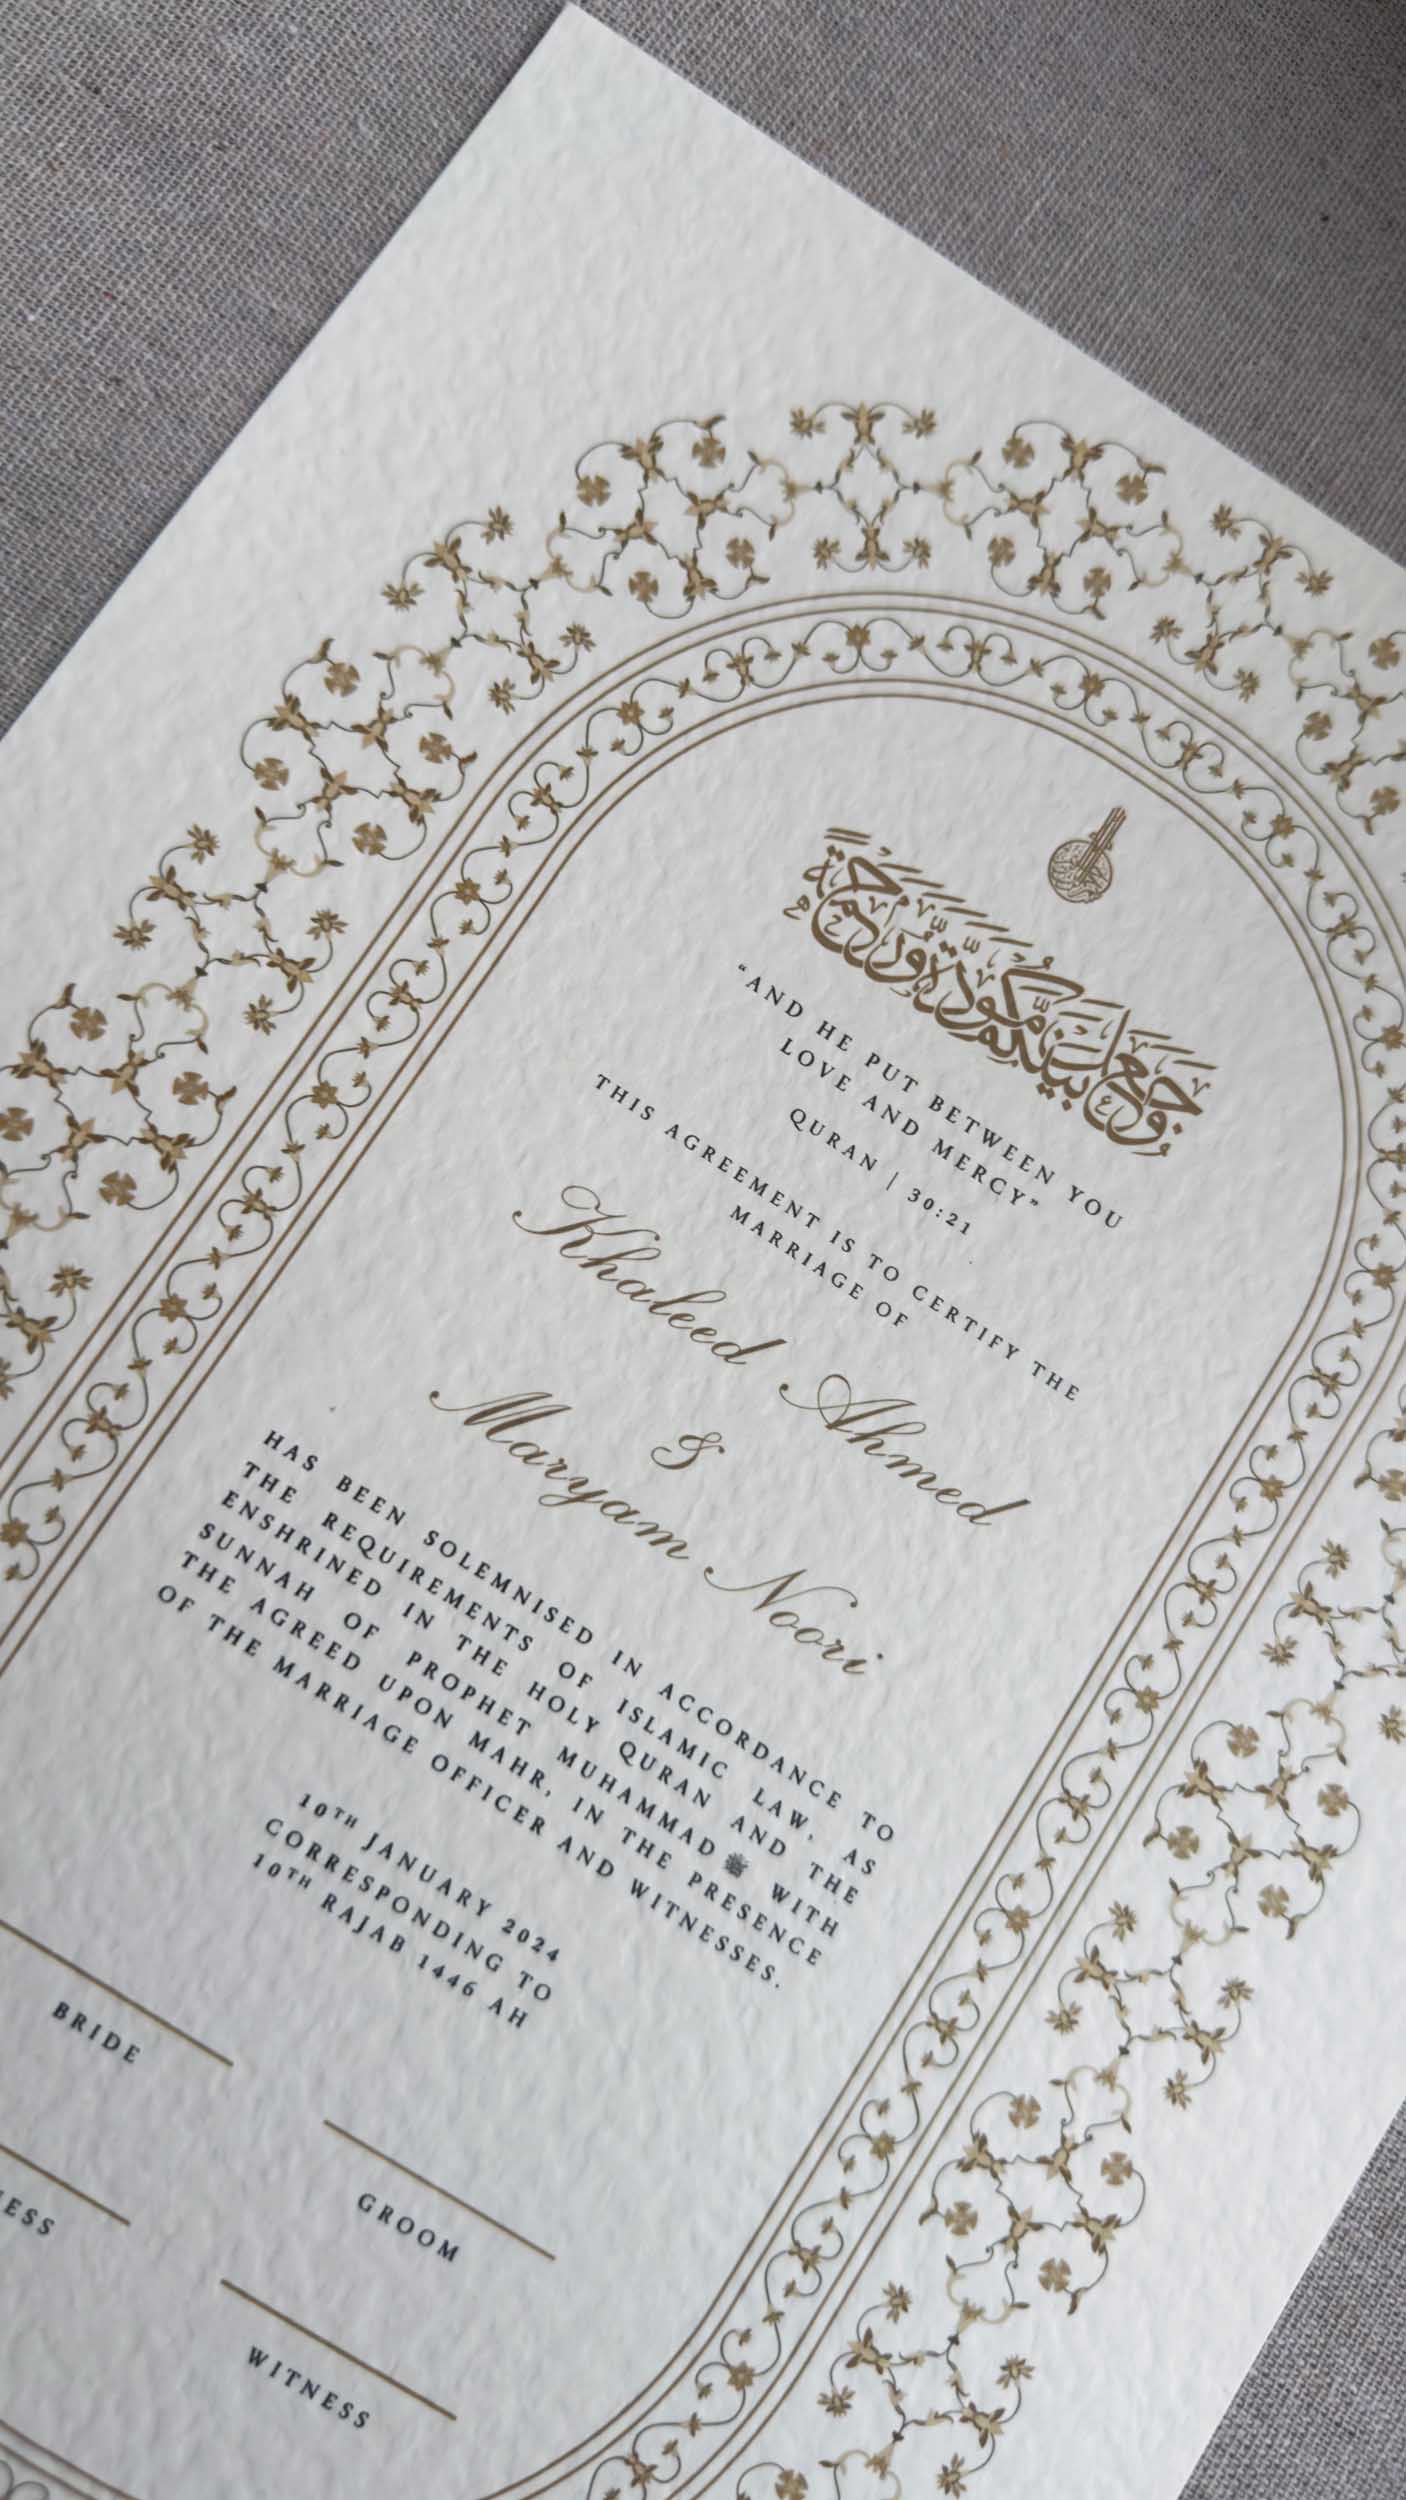 وَجَعَلَ بَيْنَكُم مَّوَدَّةً وَرَحْمَةً
“AND HE PUT BETWEEN YOU
LOVE AND MERCY”
QURAN | 30:21
THIS AGREEMENT IS TO CERTIFY THE
MARRIAGE OF
Khaleed Ahmed
&
Maryam Noori
HAS BEEN SOLEMNISED IN ACCORDANCE TO
THE REQUIREMENTS OF ISLAMIC LAW, AS
ENSHRINED IN THE HOLY QURAN AND THE
SUNNAH OF PROPHET MUHAMMAD ﷺ WITH
THE AGREED UPON MAHR, IN THE PRESENCE
OF THE MARRIAGE OFFICER AND WITNESSES.
10TH JANUARY 2024
CORRESPONDING TO
10TH RAJAB 1446 AH
BRIDE
GROOM
ESS
WITNESS